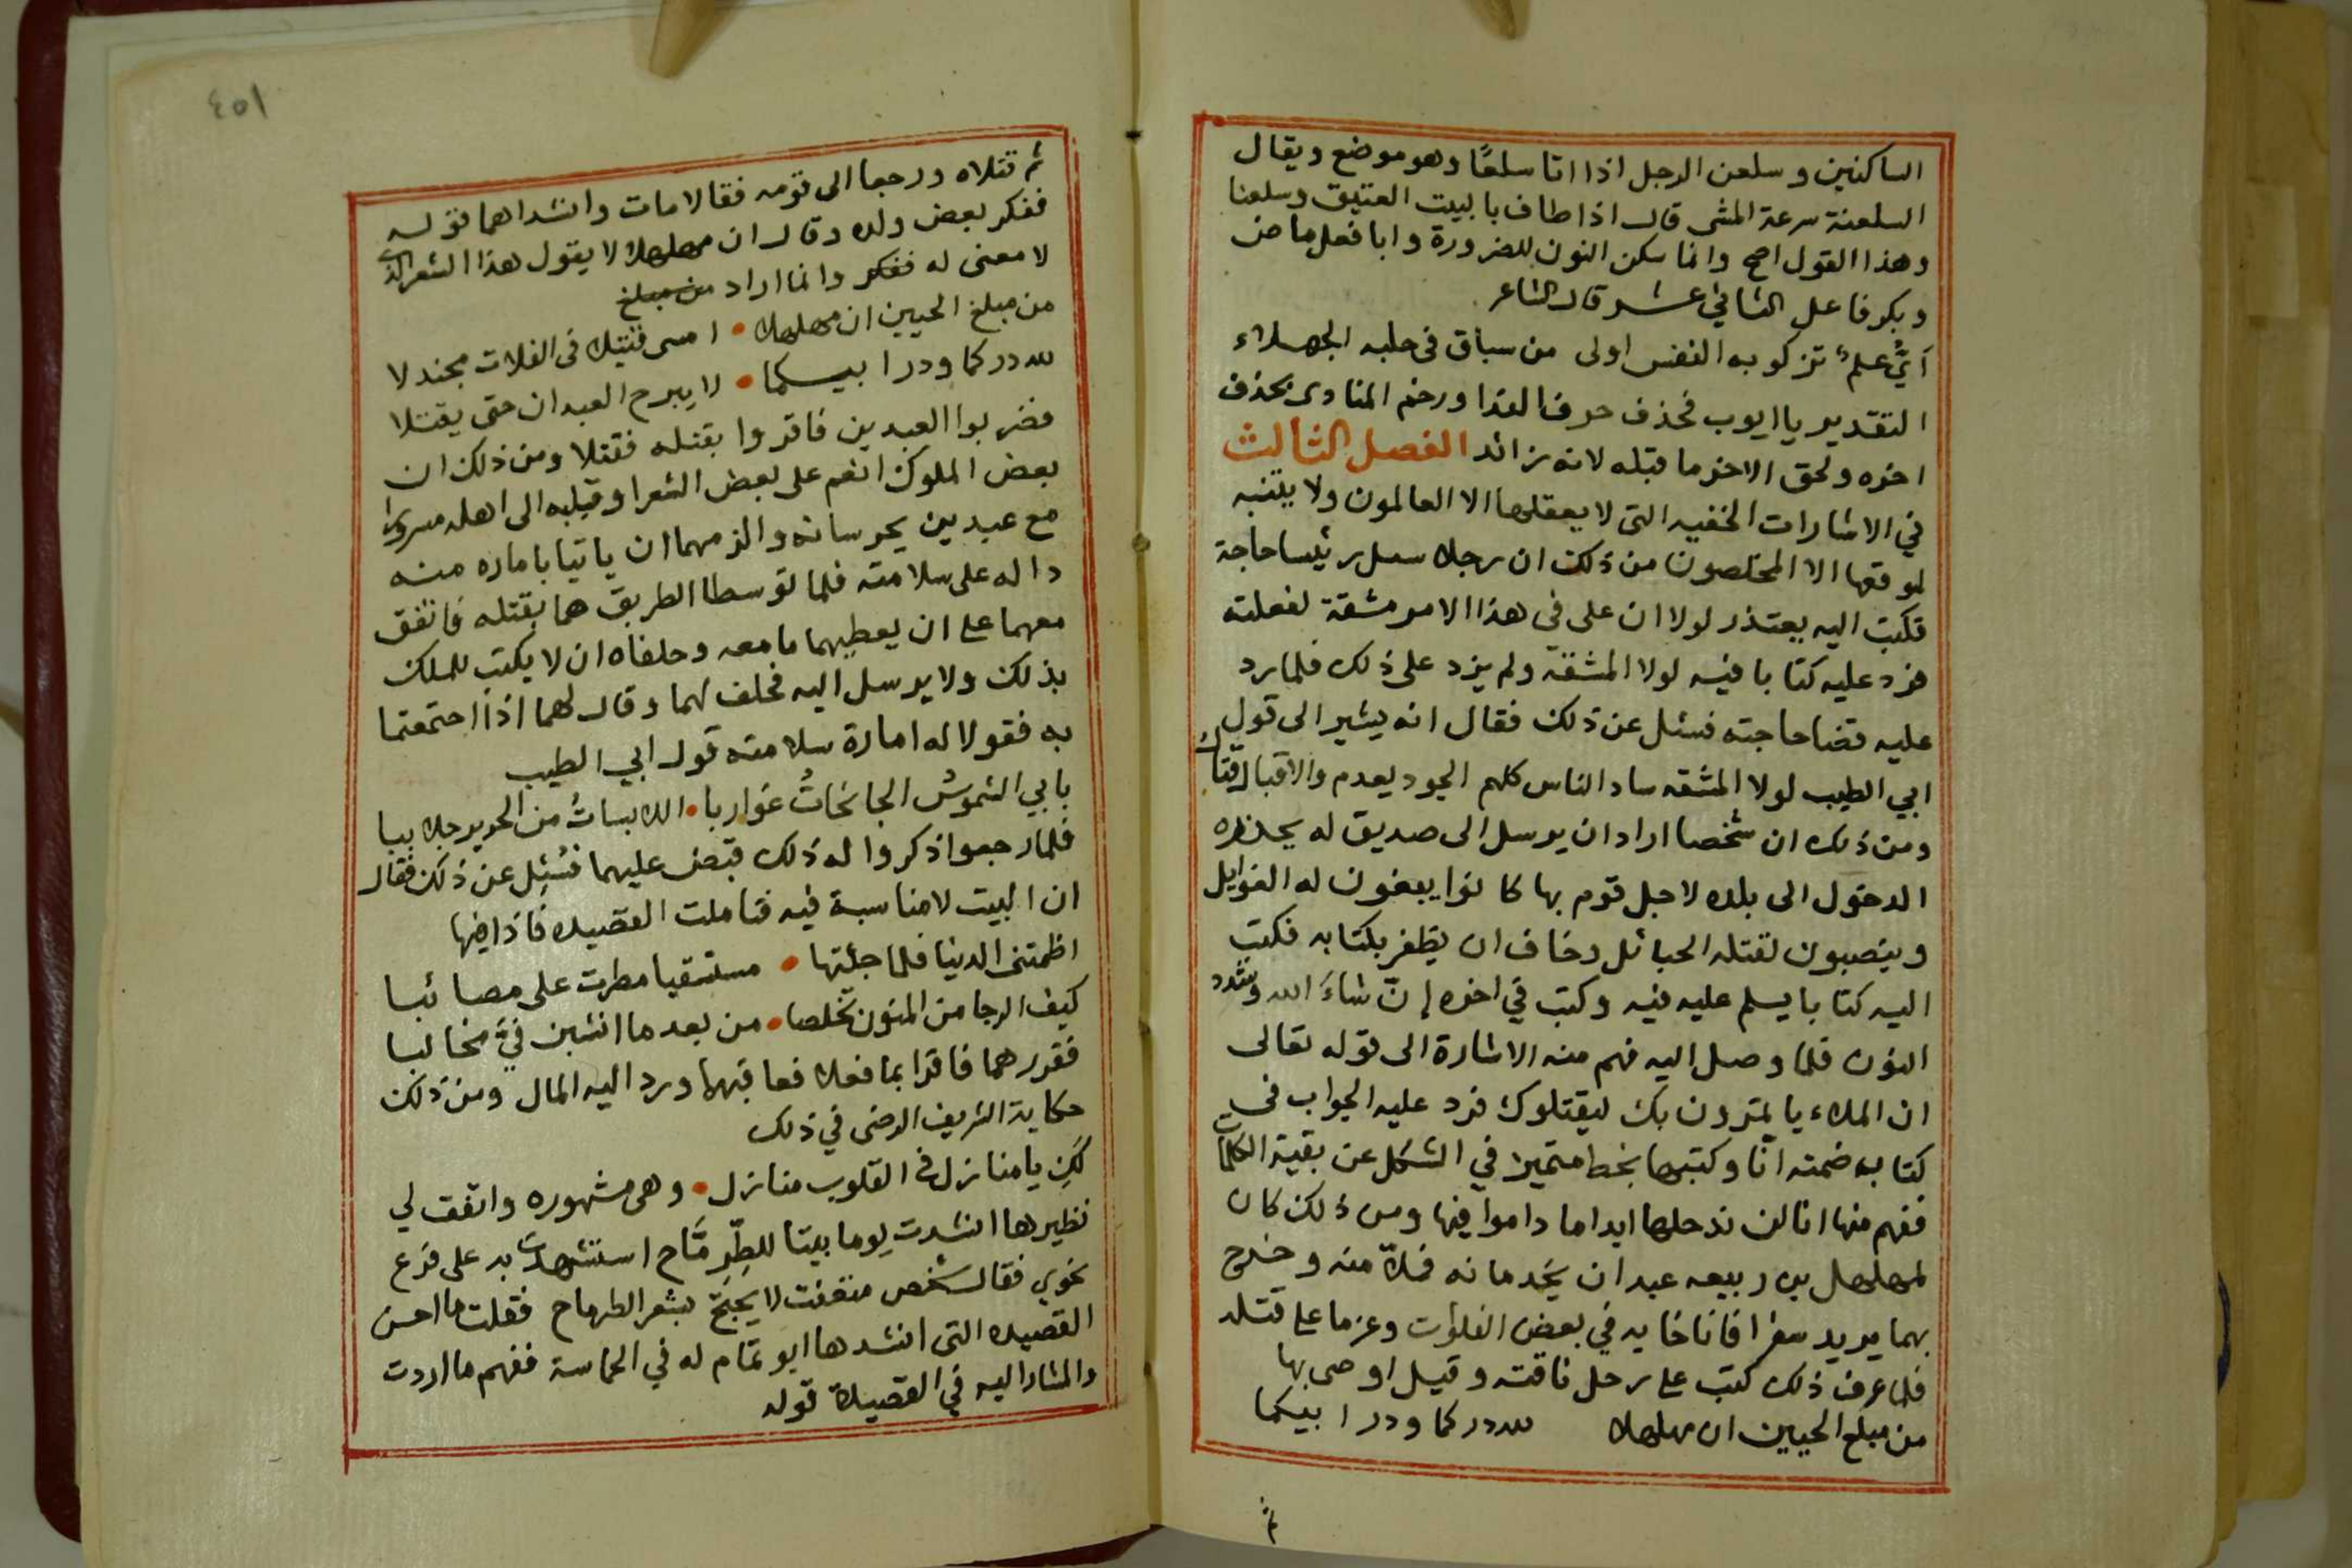 الساكنين وسلعن الرجل اذا اتا سلعًا وهو موضع ويقال
السلعنة سرعة المشى قال اذا طاف بالبيت العتيق وسلعنا
وهذا القول اصح وانما سكن النون للضرورة وابا فعل ماض
وبكر فاعل الثاني عشر قال الشاعر
اَيُّ علمٍ تزكو به النفس اولى من سباق فى حلبه الجهلاء
التقدير يا ايوب فحذف حرف الندا ورخم المنادى بحذف
اخره ولحق الاخر ما قبله لانه زائد الفصل الثالث
في الاشارات الخفيه التى لا يعقلها الا العالمون ولا يتنبه
لموقعها الا المخلصون من ذلك ان رجلا سئل رئيسا حاجة
فكتب اليه يعتذر لولا ان على فى هذا الامر مشقة لفعلته
فرد عليه كتابا فيه لولا المشقه ولم يزد على ذلك فلما رد
عليه قضا حاجته فسئل عن ذلك فقال انه يشير الى قول
ابي الطيب لولا المشقه ساد الناس كلهم الجود يعدم والاقبال قتال
ومن ذلك ان شخصا اراد ان يرسل الى صديق له يحذره
الدخول الى بلده لاجل قوم بها كانوا يبغون له الغوايل
وينصبون لقتله الحبائل وخاف ان يظفر بكتابه فكتب
اليه كتابا يسلم عليه فيه وكتب في اخره إنّ شاءَ الله وشدد
النون فلما وصل اليه فهم منه الاشارة الى قوله تعالى
ان الملاء ياتمرون بك ليقتلوك فرد عليه الجواب فى
كتاب ضمته انّا وكتبها بخط متميز في الشكل عن بقية الكلمات
ففهم منها انا لن ندخلها ابدا ما داموا فيها ومن ذلك كان
لمهلهل بن ربيعه عبدان يخدمانه فملاّ منه وخرج
بهما يريد سفرا فاناخا به في بعض الفلوات وعزما على قتله
فلما عرف ذلك كتب على رحل ناقته وقيل اوصى بها
من مبلغ الحيين ان مهلهلا لله دركما ودر ابيكما
ثم
٤٥١
ثم قتلاه ورجعا الى قومه فقالا مات وانشداهما قوله
ففكر بعض ولده وقال ان مهلهلا لا يقول هذا الشعر الذى
لا معنى له ففكر وانما اراد من مبلغ
من مبلغ الحيين ان مهلهلا • امسى قتيلا فى الفلات مجندلا
لله دركما ودر ابيسكما • لا يبرح العبدان حتى يقتلا
فضربوا العبدين فاقروا بقتله فقتلا ومن ذلك ان
بعض الملوك انعم على بعض الشعرا وقلبه الى اهله مسرورا
مع عبدين يحرسانه والزمهما ان ياتيا باماره منه
داله على سلامته فلما توسطا الطريق هما بقتله فاتفق
معهما على ان يعطيهما ما معه وحلفاه ان لا يكتب للملك
بذلك ولا يرسل اليه فحلف لهما وقال لهما اذا اجتمعتما
به فقولا له امارة سلامته قول ابي الطيب
بابي الشموسُ الجانحاتُ غواربا • اللابساتُ من الحرير جلاببا
فلما رجعوا ذكروا له ذلك قبض عليهما فسُئِل عن ذلك فقال
ان البيت لا مناسبة فيه فتاملت القصيده فاذا فيها
اظمتنى الدنيا فلما جئتها • مستسقيا مطرت على مصائبا
كيف الرجا من المنون تخلصا • من بعد ما انشبن فيَّ مخالبا
فقررهما فاقرا بما فعلا فعاقبهما ورد اليه المال ومن ذلك
حكاية الشريف الرضى في ذلك
لكِ يا منازل فى القلوب منازل • وهى مشهوره واتفق لي
نظيرها انشدت يوما بيتا للطِّرِمَّاح استشهدت به على فرع
نحوي فقال شخص متعنت لا يُحْتَجّ بشعر الطرماح فقلت ما احسن
القصيده التى انشدها ابو تمام له في الحماسة ففهم ما اردت
والمشار اليه في القصيدة قوله